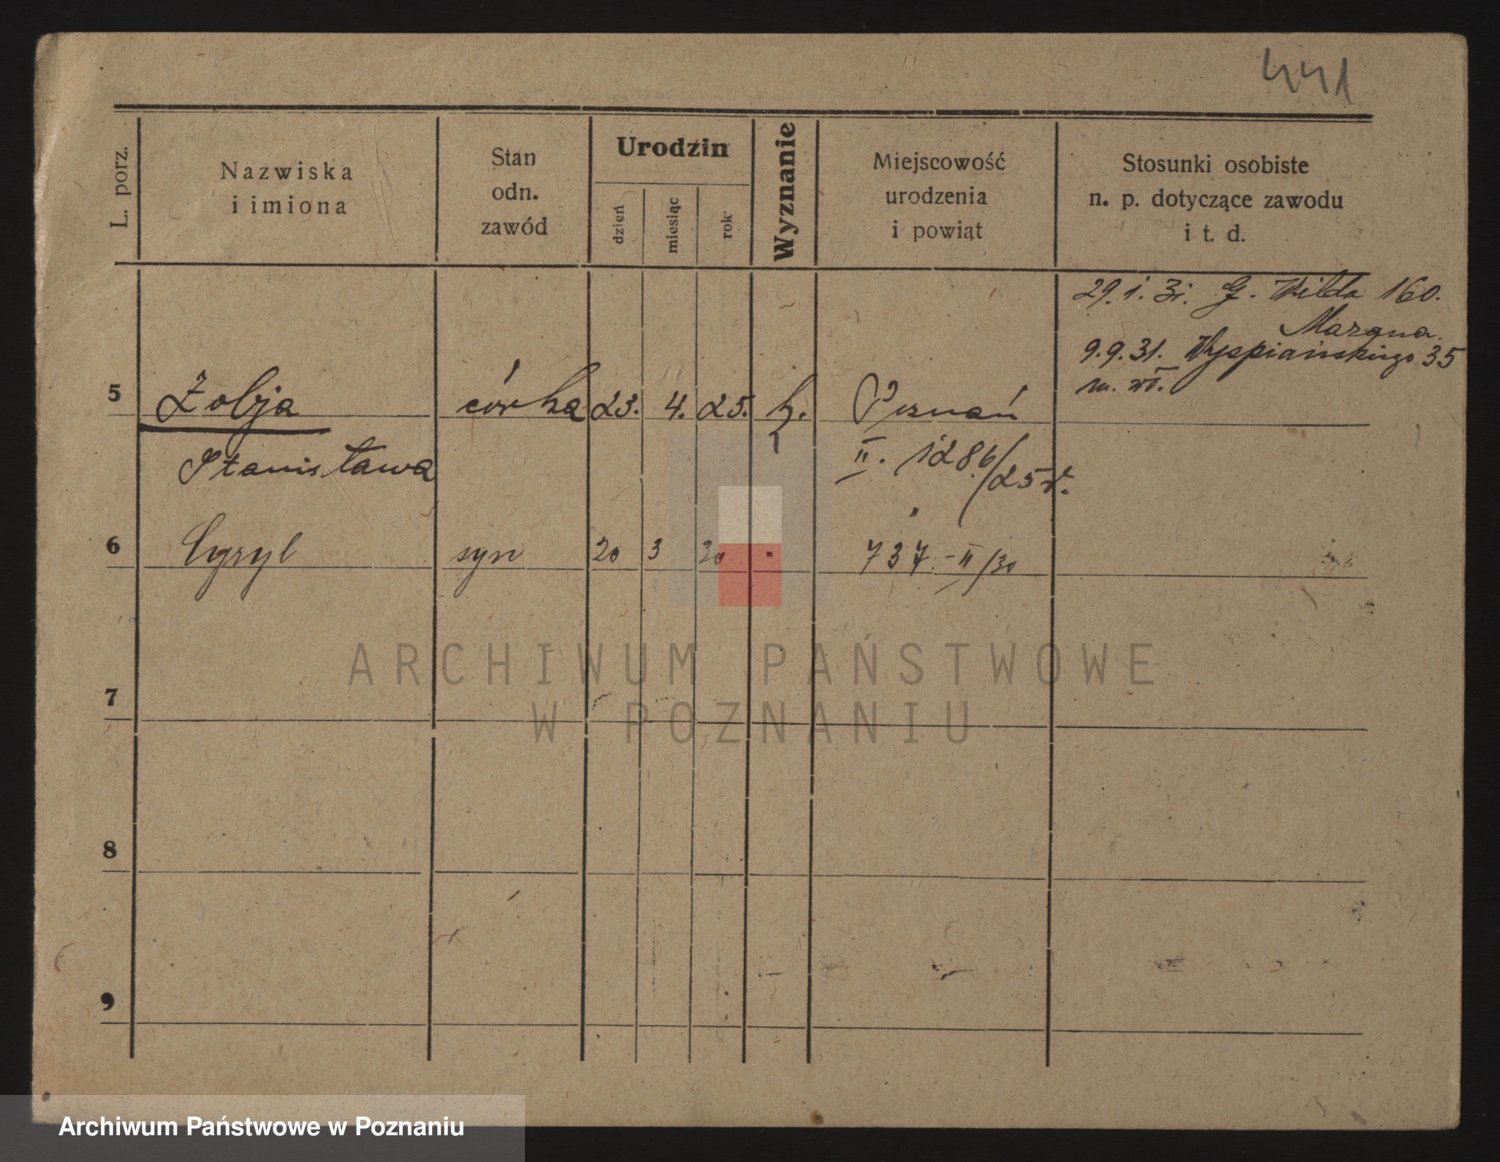 441
L. porz.
Nazwiska
i imiona
Stan
odn.
zawód
Urodzin
dzień
miesiąc
rok
Wyznanie
Miejscowość
urodzenia
i powiąt
Stosunki osobiste
n. p. dotyczące zawodu
i t. d.
29.1.31. G. Wilda 160.
9.9.31. Wyspiańskiego 35
5 Zofja córka 23. 4. 25. k. Poznań
Stanisława II. 1286/25 r.
6 Cyryl syn 20 3 30 " 737-II/30
7
8
9
ARCHIWUM PAŃSTWOWE
W POZNANIU
Archiwum Państwowe w Poznaniu